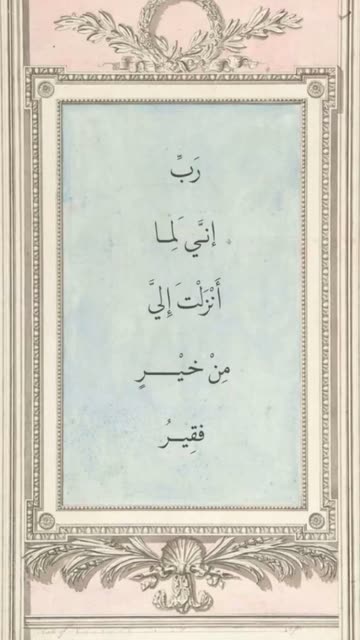 رَبِّ
إنَّي لَِمـا
أَنْزَلْتَ إِليَّ
مِنْ خَيْـــرٍ
فقِيـرُ